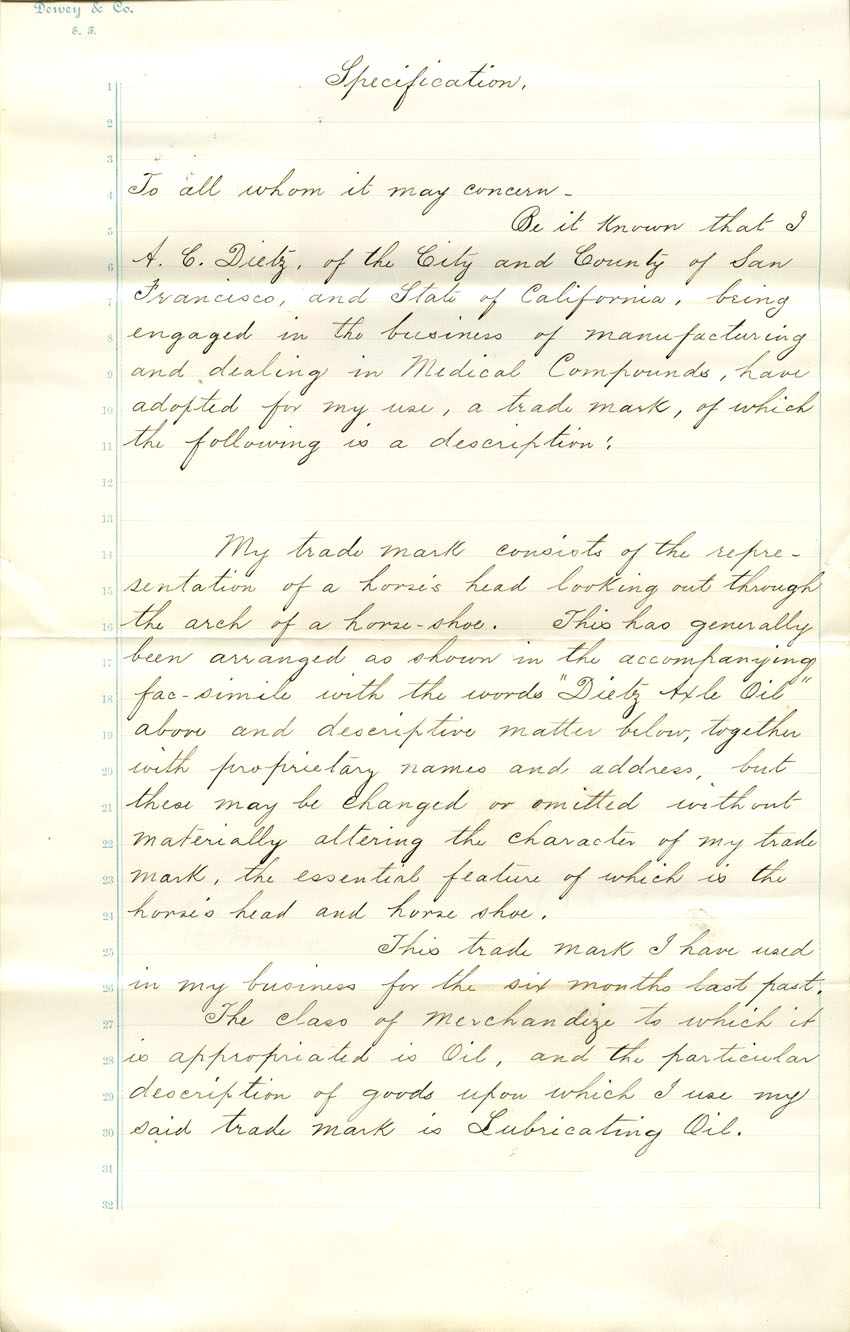 Dewey & Co.
S. F.
Specification.
1
2
3
4 To all whom it may concern -
5 Be it Known that I
6 A. C. Dietz, of the City and County of San
7 Francisco, and State of California, being
8 engaged in the business of manufacturing
9 and dealing in Medical Compounds, have
10 adopted for my use, a trade mark, of which
11 the following is a description:
12
13
14 My trade mark consists of the repre-
15 sentation of a horse's head looking out through
16 the arch of a horse-shoe. This has generally
17 been arranged as shown in the accompanying
18 fac-simile with the words "Dietz Axle Oil"
19 above and descriptive matter below, together
20 with proprietary names and address, but
21 these may be changed or omitted without
22 materially altering the character of my trade
23 mark, the essential feature of which is the
24 horse's head and horse shoe.
25 This trade mark I have used
26 in my business for the six months last past.
27 The class of merchandize to which it
28 is appropriated is Oil, and the particular
29 description of goods upon which I use my
30 said trade mark is Lubricating Oil.
31
32